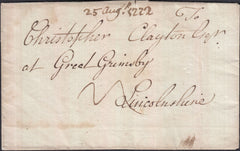 25 Augt. 1772
To
Christopher Clayton Esqr
at Greet Grimsby
Lincolnshire